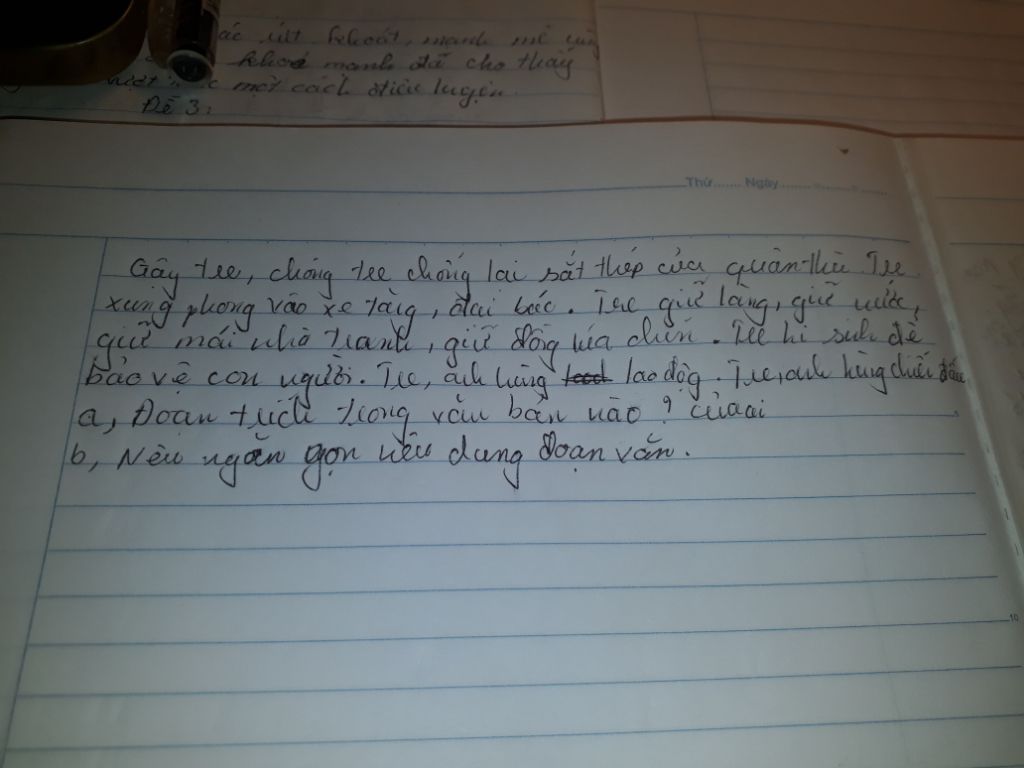 ác ứt khoát, mạnh mẽ
khoẻ mạnh đã cho thấy
một cách điêu luyện
Đề 3:
Thứ....... Ngày.......
Gậy tre, chông tre chống lại sắt thép của quân thù. Tre
xung phong vào xe tăng, đại bác. Tre giữ làng, giữ nước,
giữ mái nhà tranh, giữ đồng lúa chín. Tre hi sinh để
bảo vệ con người. Tre, anh hùng lao động. Tre, anh hùng chiến đấu
a, Đoạn trích trong văn bản nào? của ai
b, Nêu ngắn gọn nêu dung đoạn văn.
10